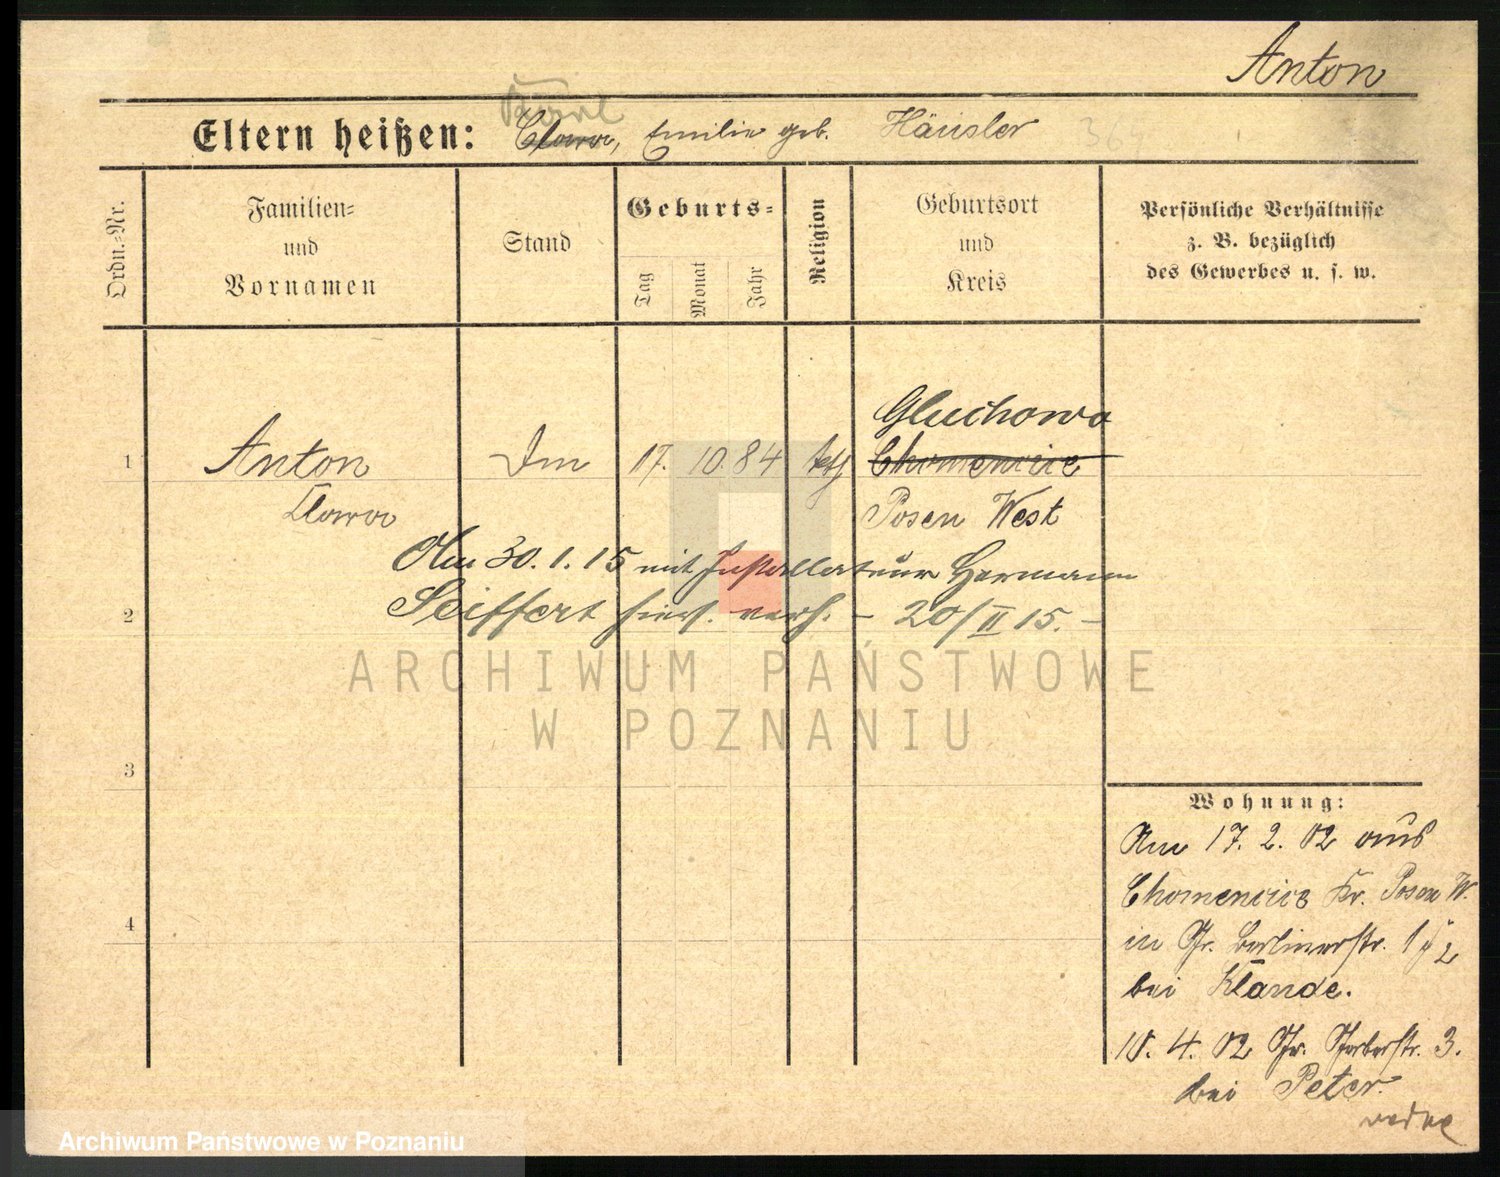 Anton
Karl
Eltern heißen: Clara, Emilie geb. Häusler
Ordn.-Nr.
Familien-
und
Vornamen
Stand
Geburts-
Tag
Monat
Jahr
Religion
Geburtsort
und
Kreis
Persönliche Verhältnisse
z. B. bezüglich
des Gewerbes u. s. w.
Gluchowo
1 Anton 17. 10. 84 Chomencice
Clara Posen West
Am 30. 1. 15 mit Installateur Hermann
2 Seiffert hier verh. – 20/II 15. –
ARCHIWUM PAŃSTWOWE
W POZNANIU
3
4
Wohnung:
Am 17. 2. 02 aus
Chomencice Kr. Posen W.
in Gr. Berlinerstr.
bei Klande.
10. 4. 02 Gr. 3.
bei Peter.
Archiwum Państwowe w Poznaniu